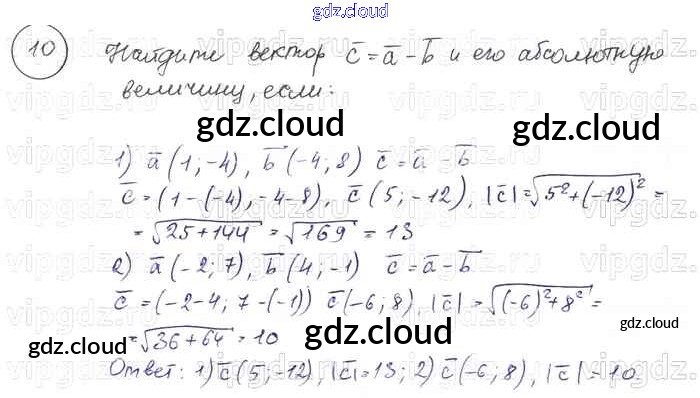 gdz.cloud
10 Найдите вектор c̅ = a̅ - b̅ и его абсолютную
величину, если:
gdz.cloud
gdz.cloud
1) a̅ (1; -4), b̅ (-4; 8) c̅ = a̅ - b̅
c̅ = (1-(-4), -4-8), c̅ (5; -12), |c̅| = √5²+(-12)² =
= √25+144 = √169 = 13
2) a̅ (-2; 7), b̅ (4; -1) c̅ = a̅ - b̅
c̅ = (-2-4; 7-(-1)) c̅ (-6; 8), |c̅| = √(-6)²+8² =
gdz.cloud
gdz.cloud
= √36+64 = 10
gdz.cloud
Ответ: 1) c̅ (5; -12), |c̅| = 13; 2) c̅ (-6; 8), |c̅| = 10